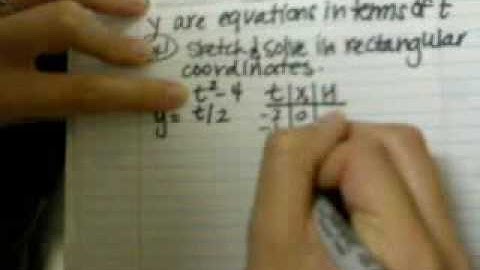 y are equations in terms of t
sketch & solve in rectangular
coordinates.
t²-4 t x y
y= t/2 -2 0